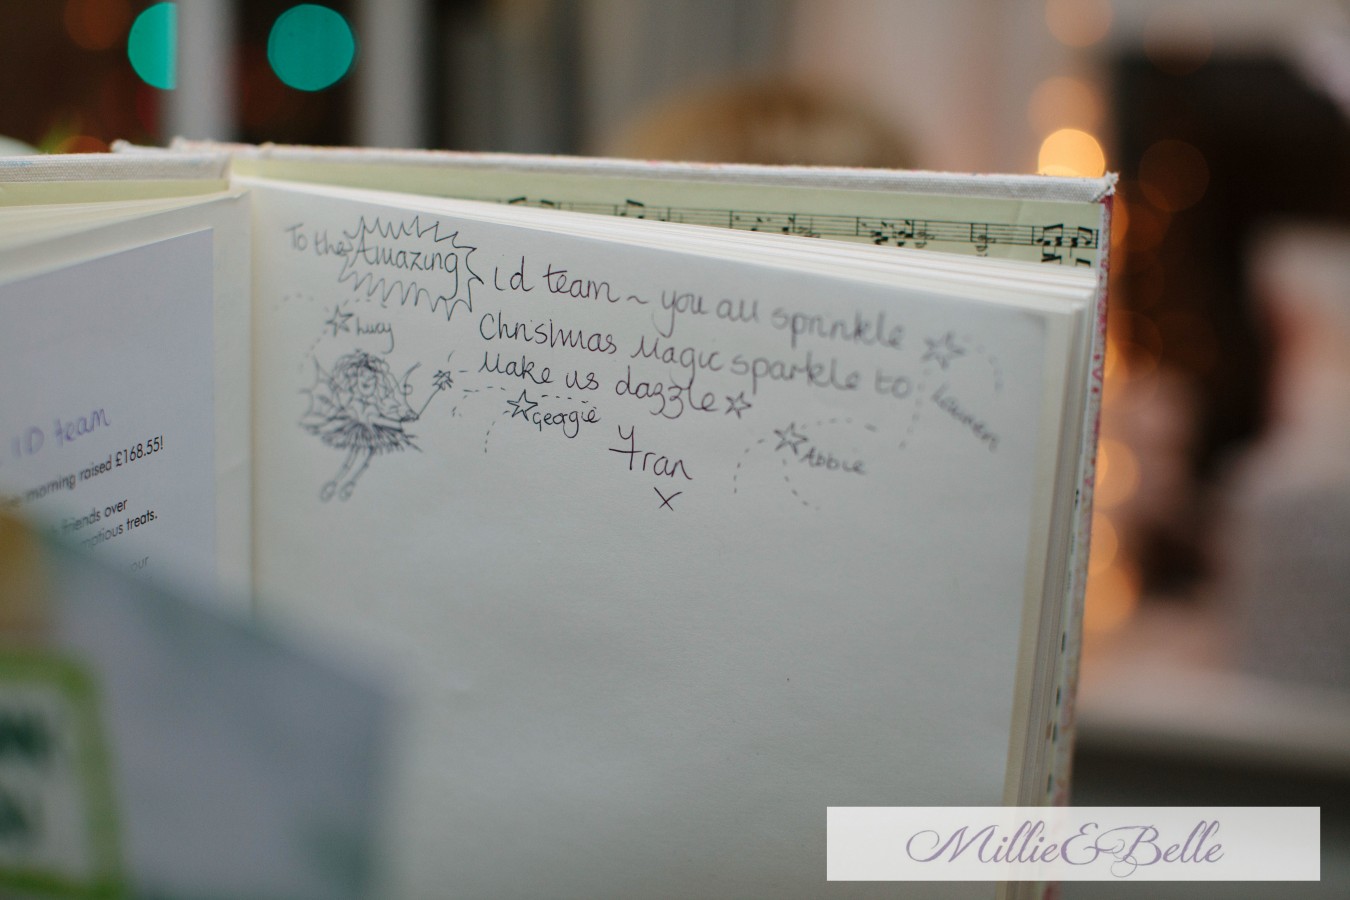 To the Amazing id team ~ you all sprinkle
Christmas Magic sparkle to
Make us dazzle
Lucy
Georgie
Abbie
Lauren
Fran
x
ID team
morning raised £168.55!
friends over
treats.
our
Millie&Belle